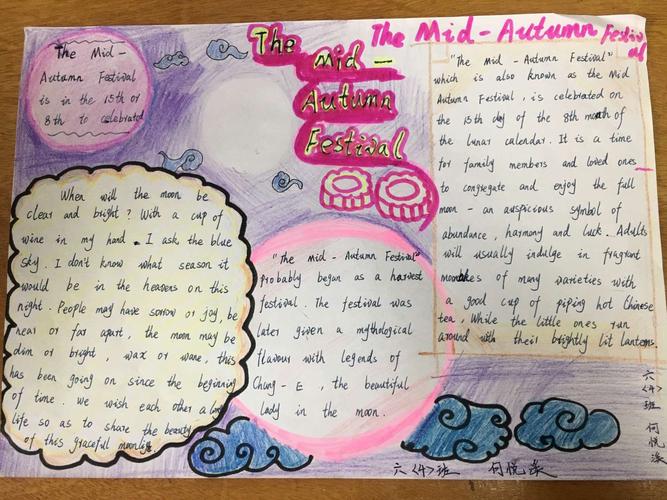 The Mid-Autumn Festival
The
Mid -
Autumn
Festival
The Mid -
Autumn Festival
is in the 15th or
8th to celebrated
When will the moon be
clear and bright? With a cup of
wine in my hand. I ask the blue
sky. I don't know what season it
would be in the heavens on this
night. People may have sorrow or joy, be
near or far apart, the moon may be
dim or bright, wax or wane, this
has been going on since the beginning
of time. We wish each other a long
life so as to share the beauty
of this graceful moonlight
"The Mid - Autumn Festival"
probably began as a harvest
festival. The festival was
later given a mythological
flavour with legends of
Chang-E, the beautiful
lady in the moon.
"The Mid - Autumn Festival"
which is also known as the Mid
Autumn Festival, is celebrated on
the 15th day of the 8th month of
the lunar calendar. It is a time
for family members and loved ones
to congregate and enjoy the full
moon - an auspicious symbol of
abundance, harmony and luck. Adults
will usually indulge in fragrant
mooncakes of many varieties with
a good cup of piping hot Chinese
tea, While the little ones run
around with their brightly lit lanterns
六〈4〉班 何悦
六〈4〉班 何悦